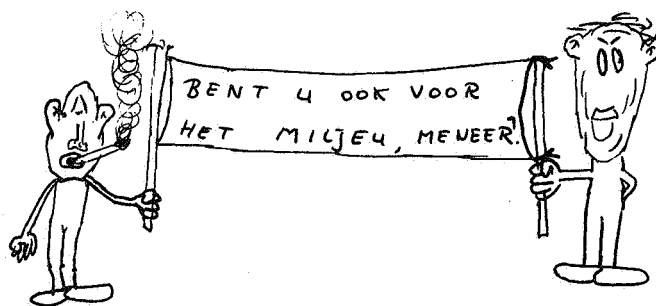 BENT U OOK VOOR
HET MILJEU, MENEER?